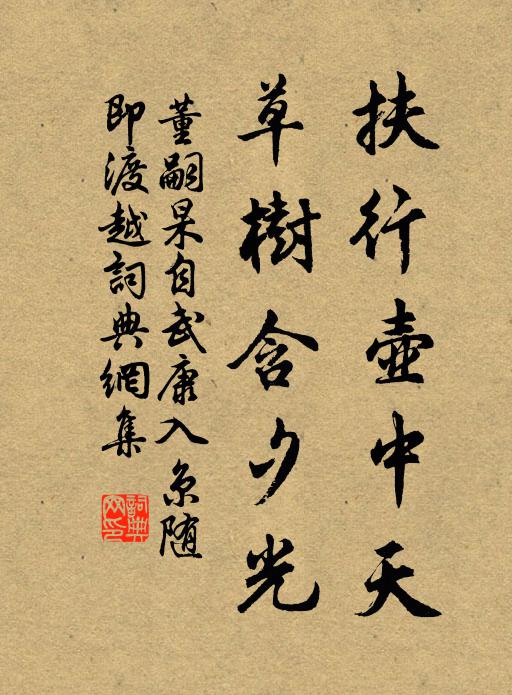 扶行壺中天
草樹含夕光
董嗣杲自武康入京随
即渡越詞典網集
詞典网印